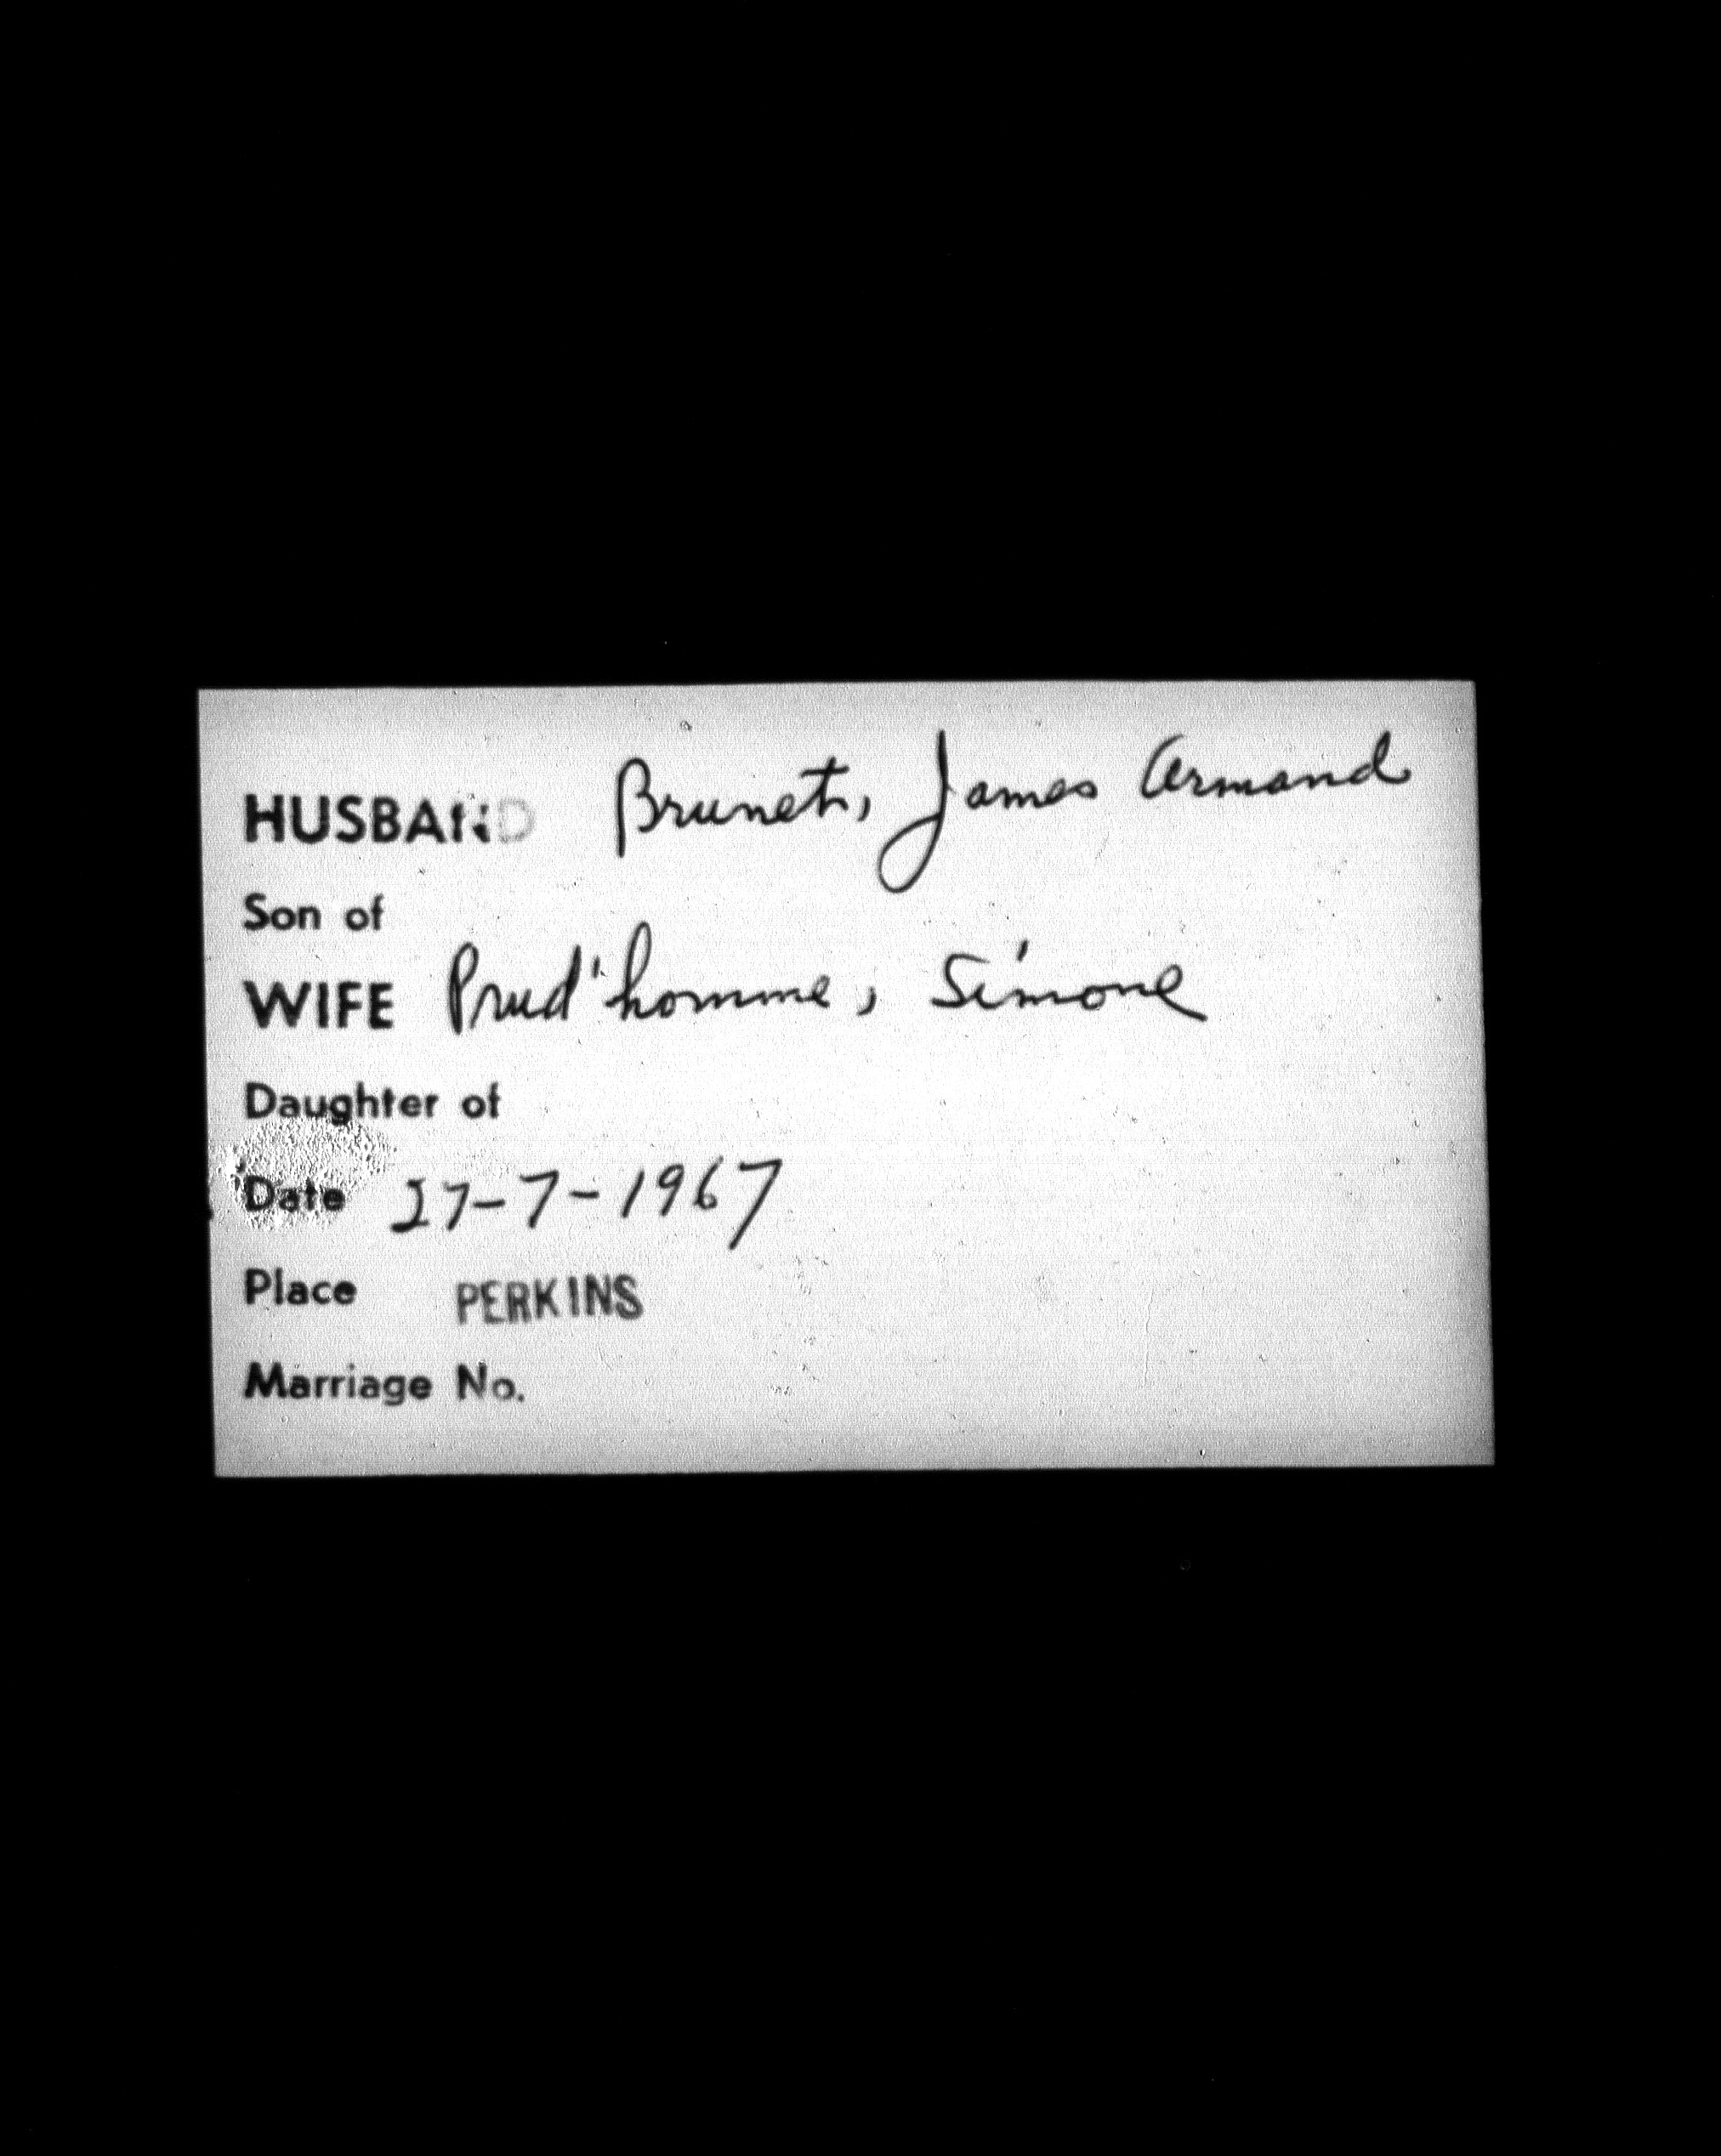 HUSBAND Brunet, James Armand
Son of
WIFE Prud'homme, Simone
Daughter of
Date 27-7-1967
Place PERKINS
Marriage No.